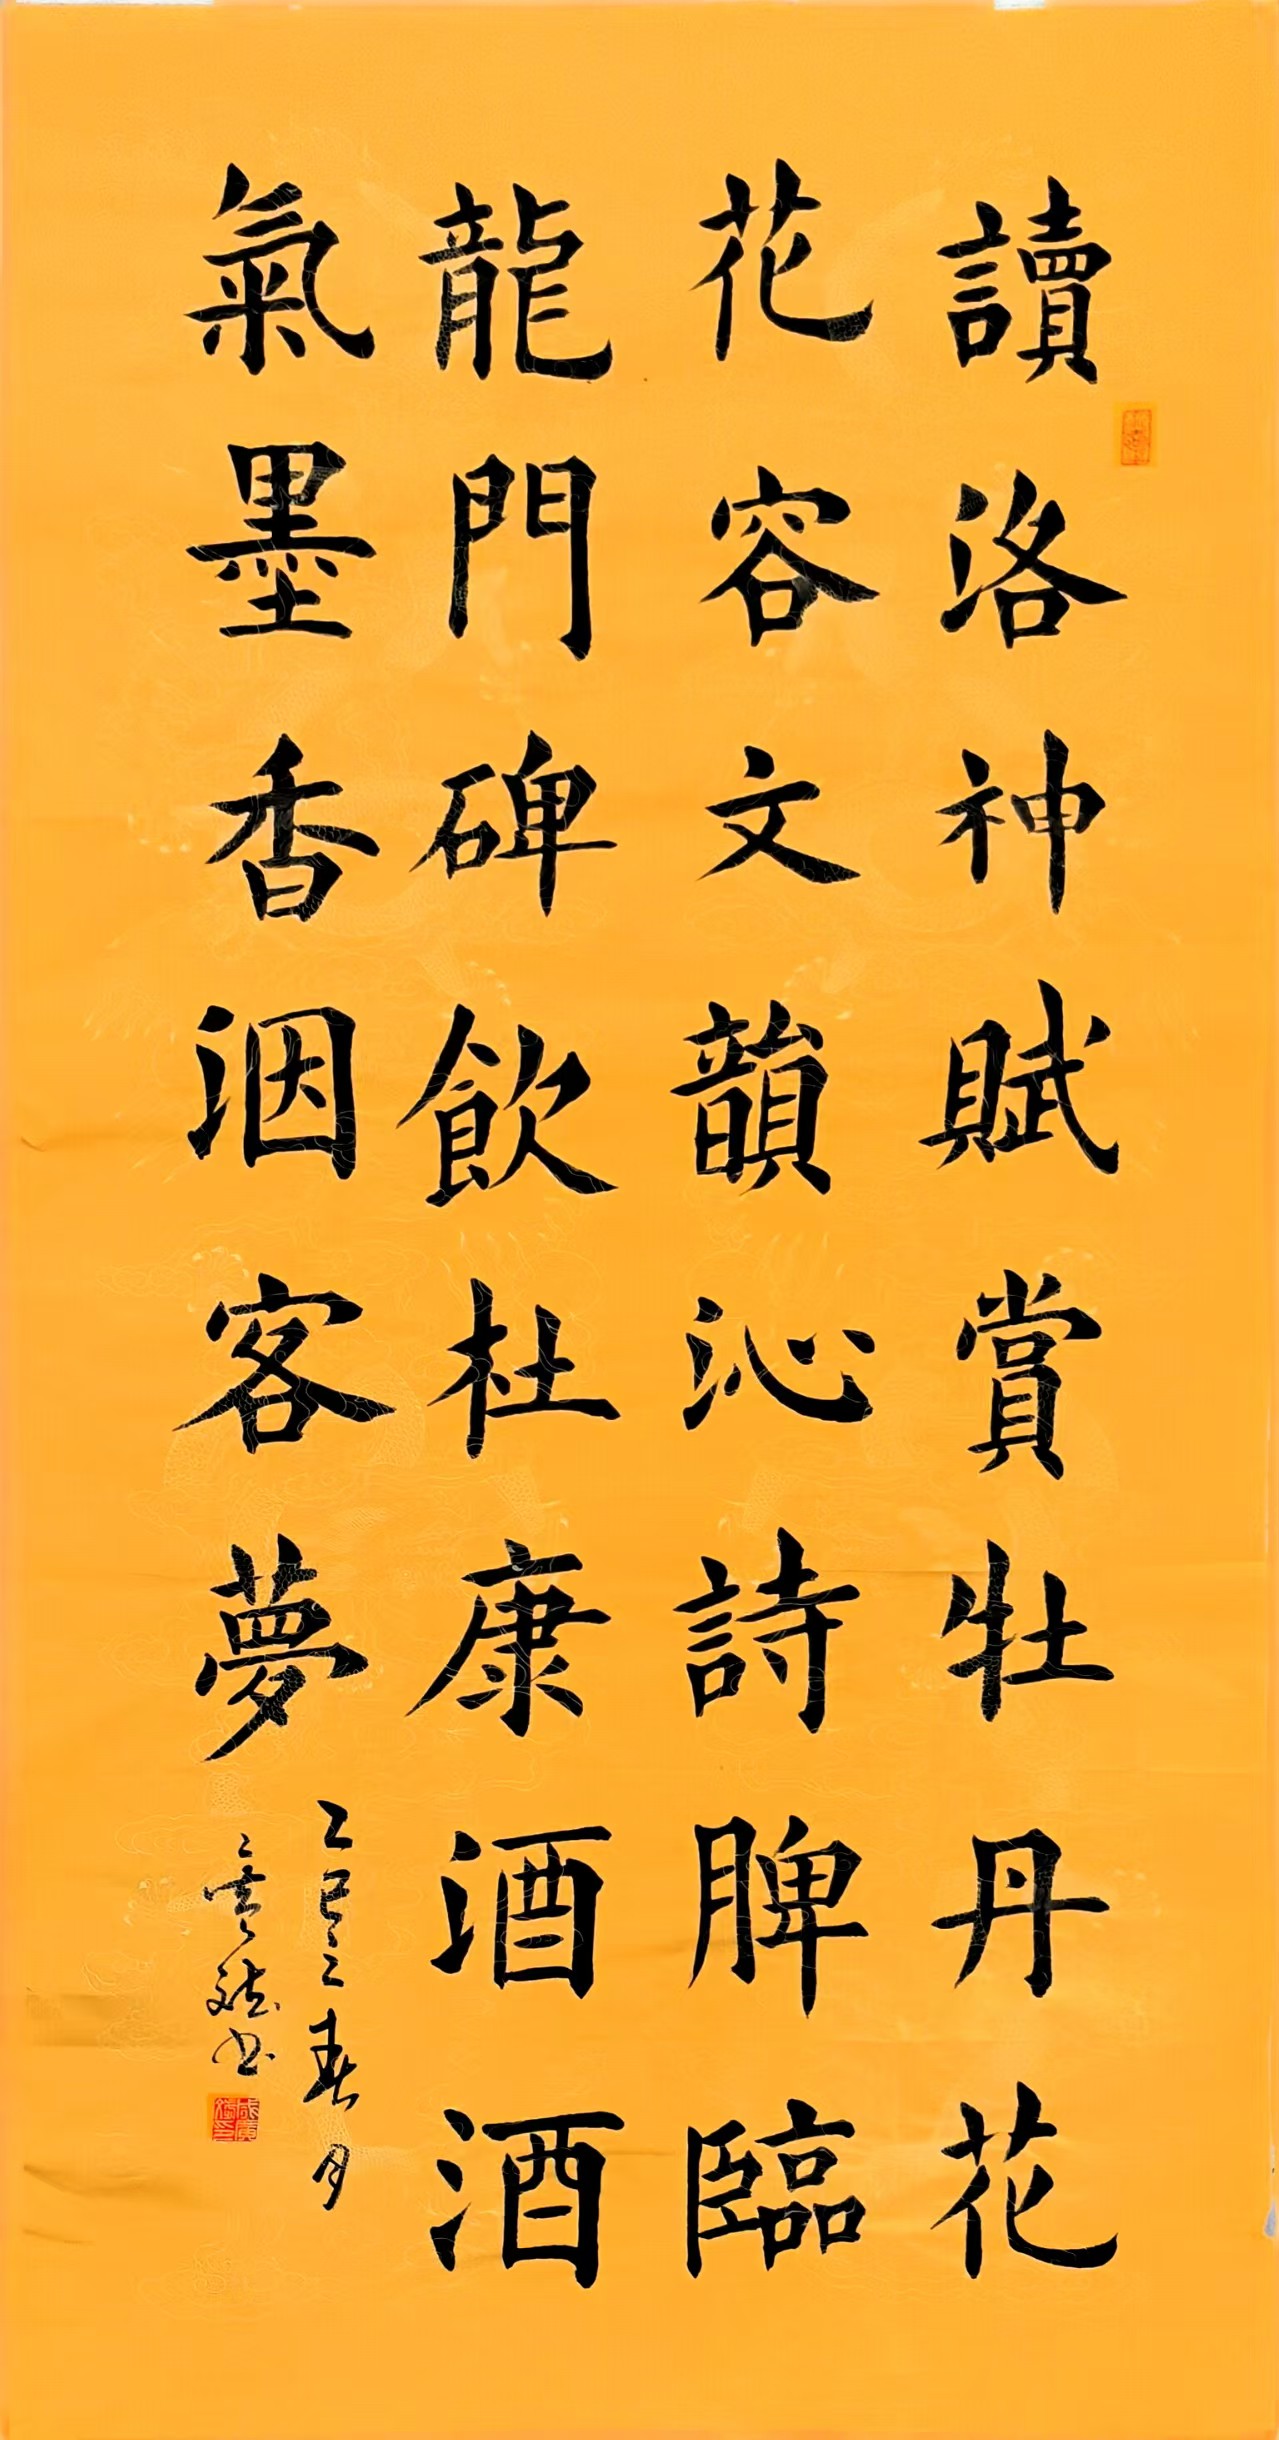 讀洛神賦賞牡丹花
花容文韻沁詩脾臨
龍門碑飲杜康酒酒
氣墨香洇客夢
乙巳之春月
書